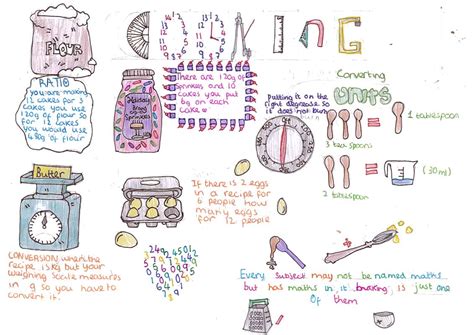 FLOUR
RATIO
you are making
12 cakes for 3
cakes you use
120g of flour so
for 12 cakes
you would use
480g of flour
Holiday
Sprinkles
There are 120g of
Sprinkles and 10
cakes you put
by on each
cake
Converting
UNITS
Putting it on the
right degrees so
it does not burn
3 tea spoons
1 tablespoon
(30ml)
Butter
If there is 2 eggs
in a recipe for
6 people how
many eggs
for 12 people
CONVERSION, when the
recipe is kg but your
weighing scale measures
in g so you have to
convert it.
Every subject may not be named maths
but has maths in it, baking, is just one
Of them